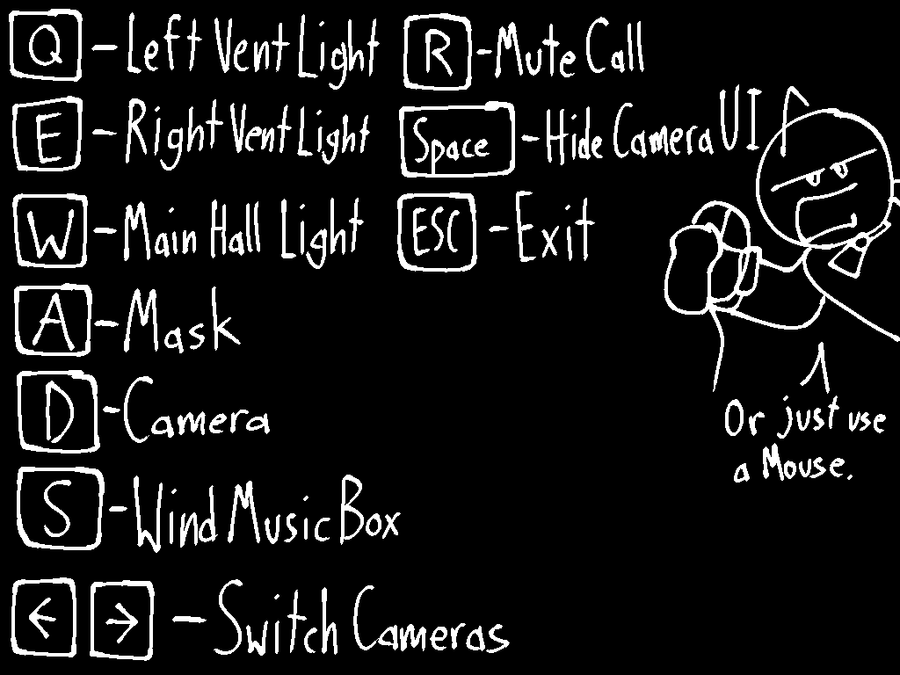 Q - Left Vent Light
E - Right Vent Light
W - Main Hall Light
A - Mask
D - Camera
S - Wind Music Box
← → - Switch Cameras
R - Mute Call
Space - Hide Camera UI
ESC - Exit
Or just use
a Mouse.